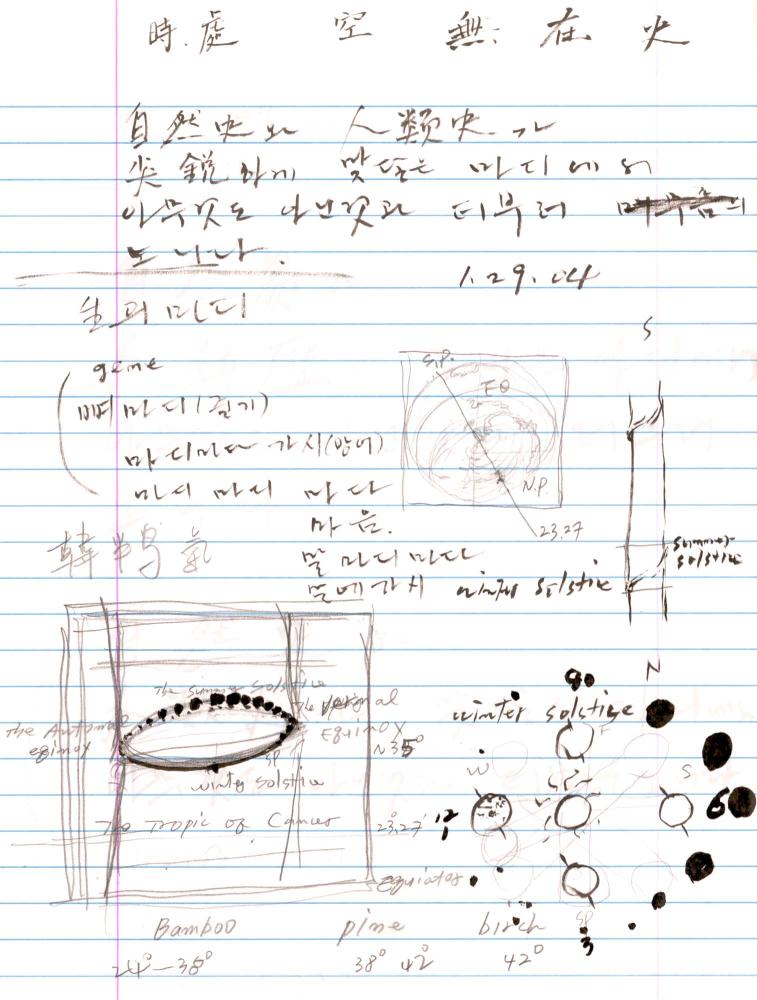 時.處 空 無. 在 史
自然史와 人類史가
尖銳하게 맞닿는 마디에서
아무것도 아닌것과 더부러
노니나.
1.29.04
生과 마디
gene
뼈마디(길기)
마디마다 가시(방어)
마디 마디 마다
마음.
말 마디 마다
말에 가시
S.P.
EQ
N.P.
23,27
S
summer solstice
winter solstice
N
The summer solstice
The Vernal Equinox
The Autumnal eqinox
N35°
SP
winter solstice
The Tropic of Cancer
23.27'
equiator
winter solstice
9
F
W
S
12
6
SP
3
Bamboo pine birch
24°—38° 38° 42° 42°